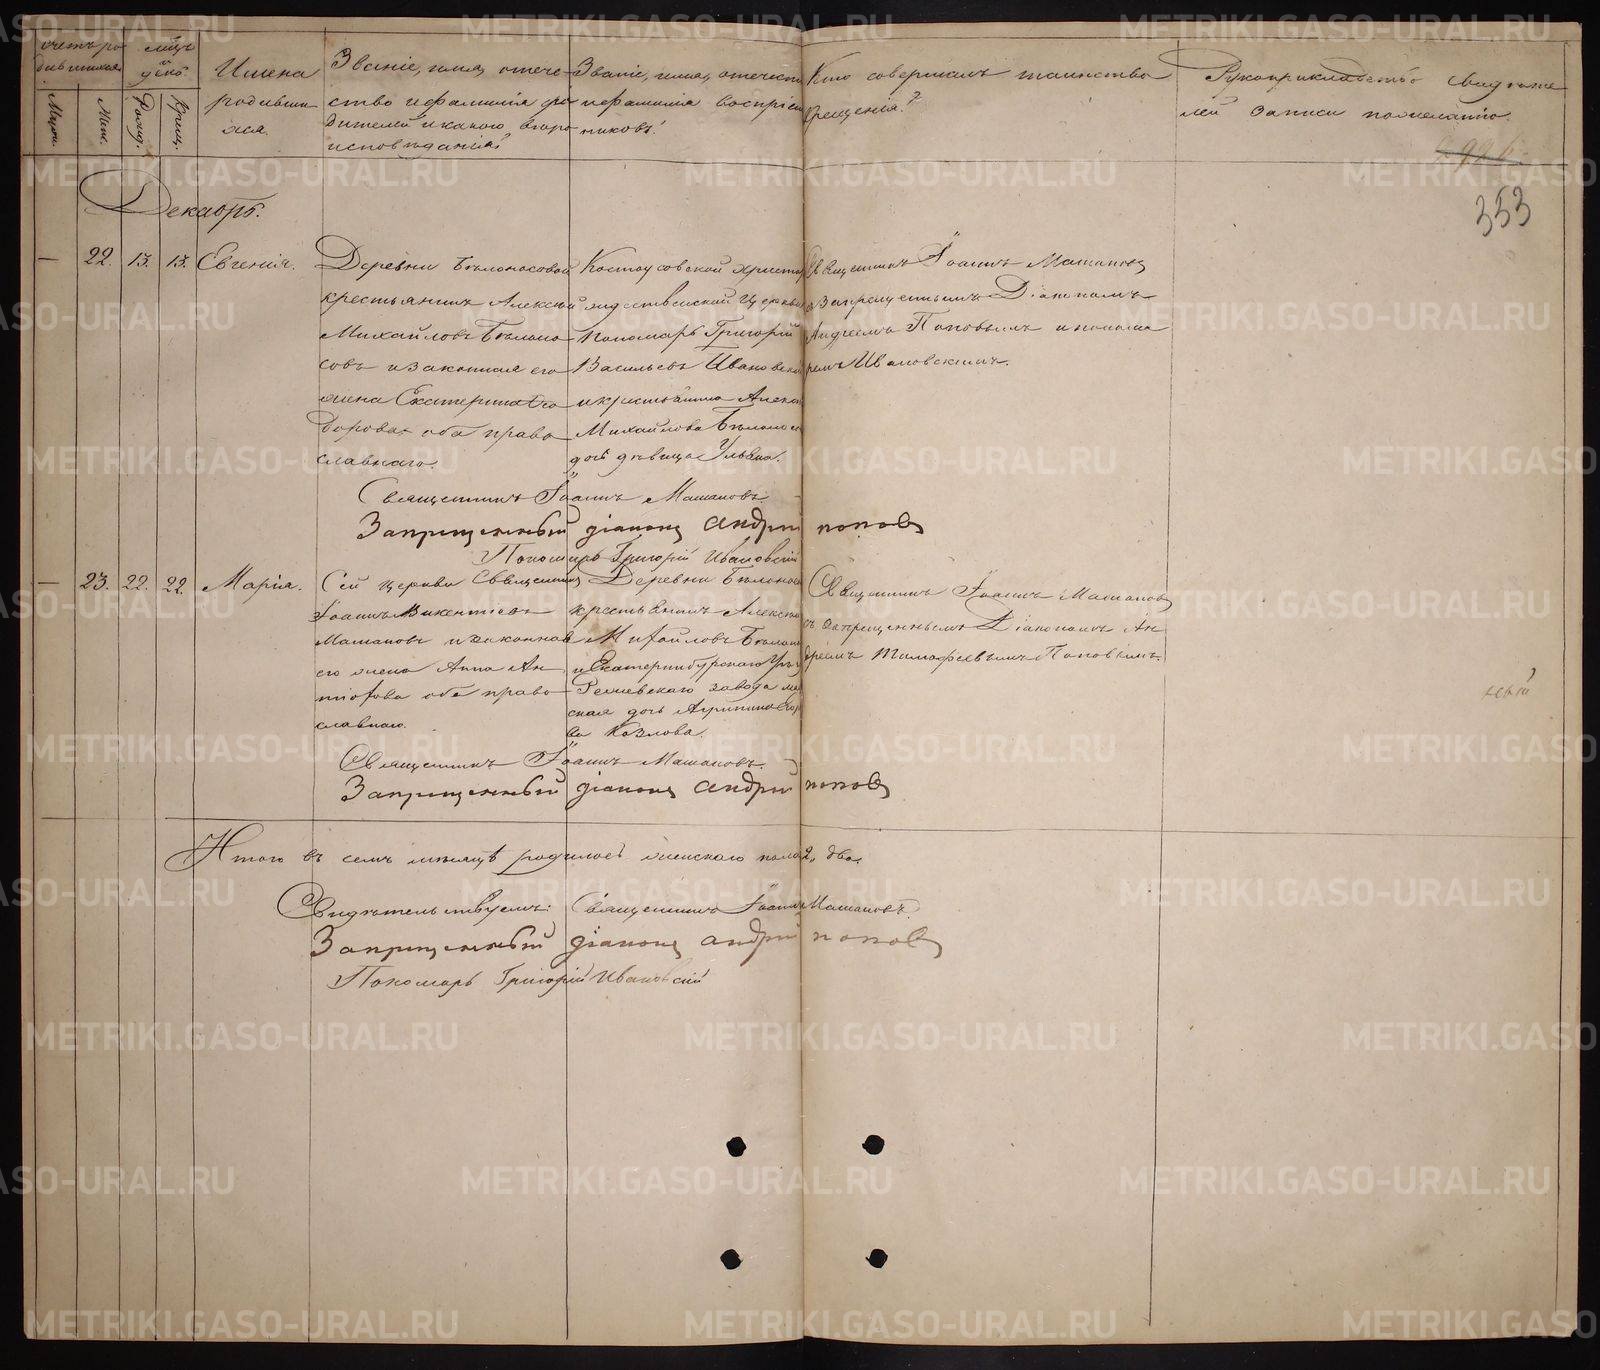 Счетъ ро
дившихся
Муж.
Жен.
Мѣсяцъ
и день
Рожд.
Крещ.
Имена
родивши
хся.
Званіе, имя, отече
ство и фамилія ро
дителей и какого вѣро
исповѣданія
Званіе, имя, отечество
и фамилія воспріем
никовъ.
Кто совершалъ таинство
Крещенія?
Рукоприкладство свидѣте
лей записи по желанію.
353
Декабрь.
— 22. 13. 13. Евгенія.
Деревни Бѣлоносовой
крестьянинъ Алексѣй
Михайловъ Бѣлоно
совъ и законная его
жена Екатерина Ѳео
дорова оба право
славнаго.
Костоусовской Христо
рождественской Церкви
пономарь Григорій
Васильевъ Ивановскій
и крестьянина Алексѣя
Михайлова Бѣлоносова
дочь дѣвица Ульяна.
Священникъ Іоаннъ Машановъ
съ запрещеннымъ Діакономъ
Андреемъ Поповымъ и понома
ремъ Ивановскимъ.
Священникъ Іоаннъ Машановъ
Запрещенный діаконъ Андрей Поповъ
Пономарь Григорій Ивановскій
— 23. 22. 22. Марія.
Сей церкви Священникъ
Іоаннъ Викентіевъ
Машановъ и законная
его жена Анна Ан
тіофова оба право
славнаго.
Деревни Бѣлоносовой
крестьянинъ Алексѣй
Михайловъ Бѣлоносовъ
и Екатеринбургскаго Уѣзда
Режевскаго завода
дочь Агрипина
Козлова.
Священникъ Іоаннъ Машановъ
съ запрещеннымъ Діакономъ Ан
дреемъ Тимофеевымъ Поповымъ.
Священникъ Іоаннъ Машановъ.
Запрещенный діаконъ Андрей Поповъ
Итого въ семъ мѣсяцѣ родилось женскаго пола 2, два.
Свидѣтельствуемъ: Священникъ Іоаннъ Машановъ.
Запрещенный діаконъ Андрей Поповъ
Пономарь Григорій Ивановскій
METRIKI.GASO-URAL.RU